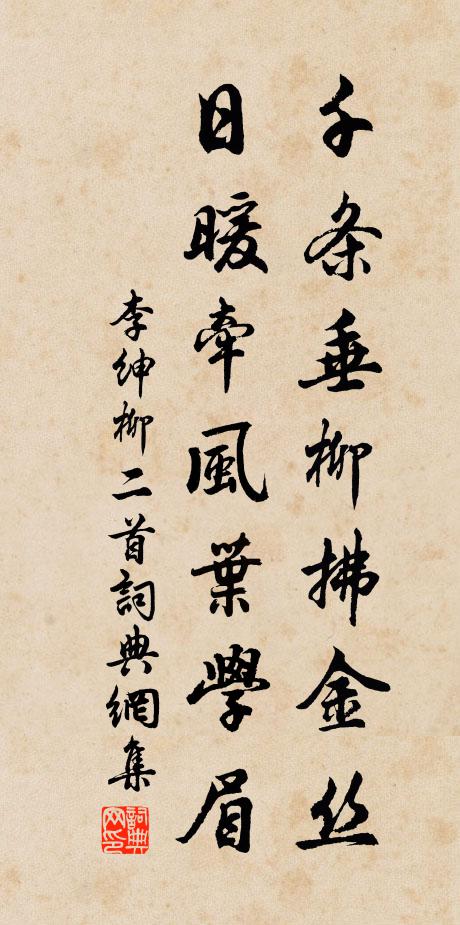 千条垂柳拂金丝
日暖牵風葉學眉
李紳柳二首詞典網集
詞典
网印